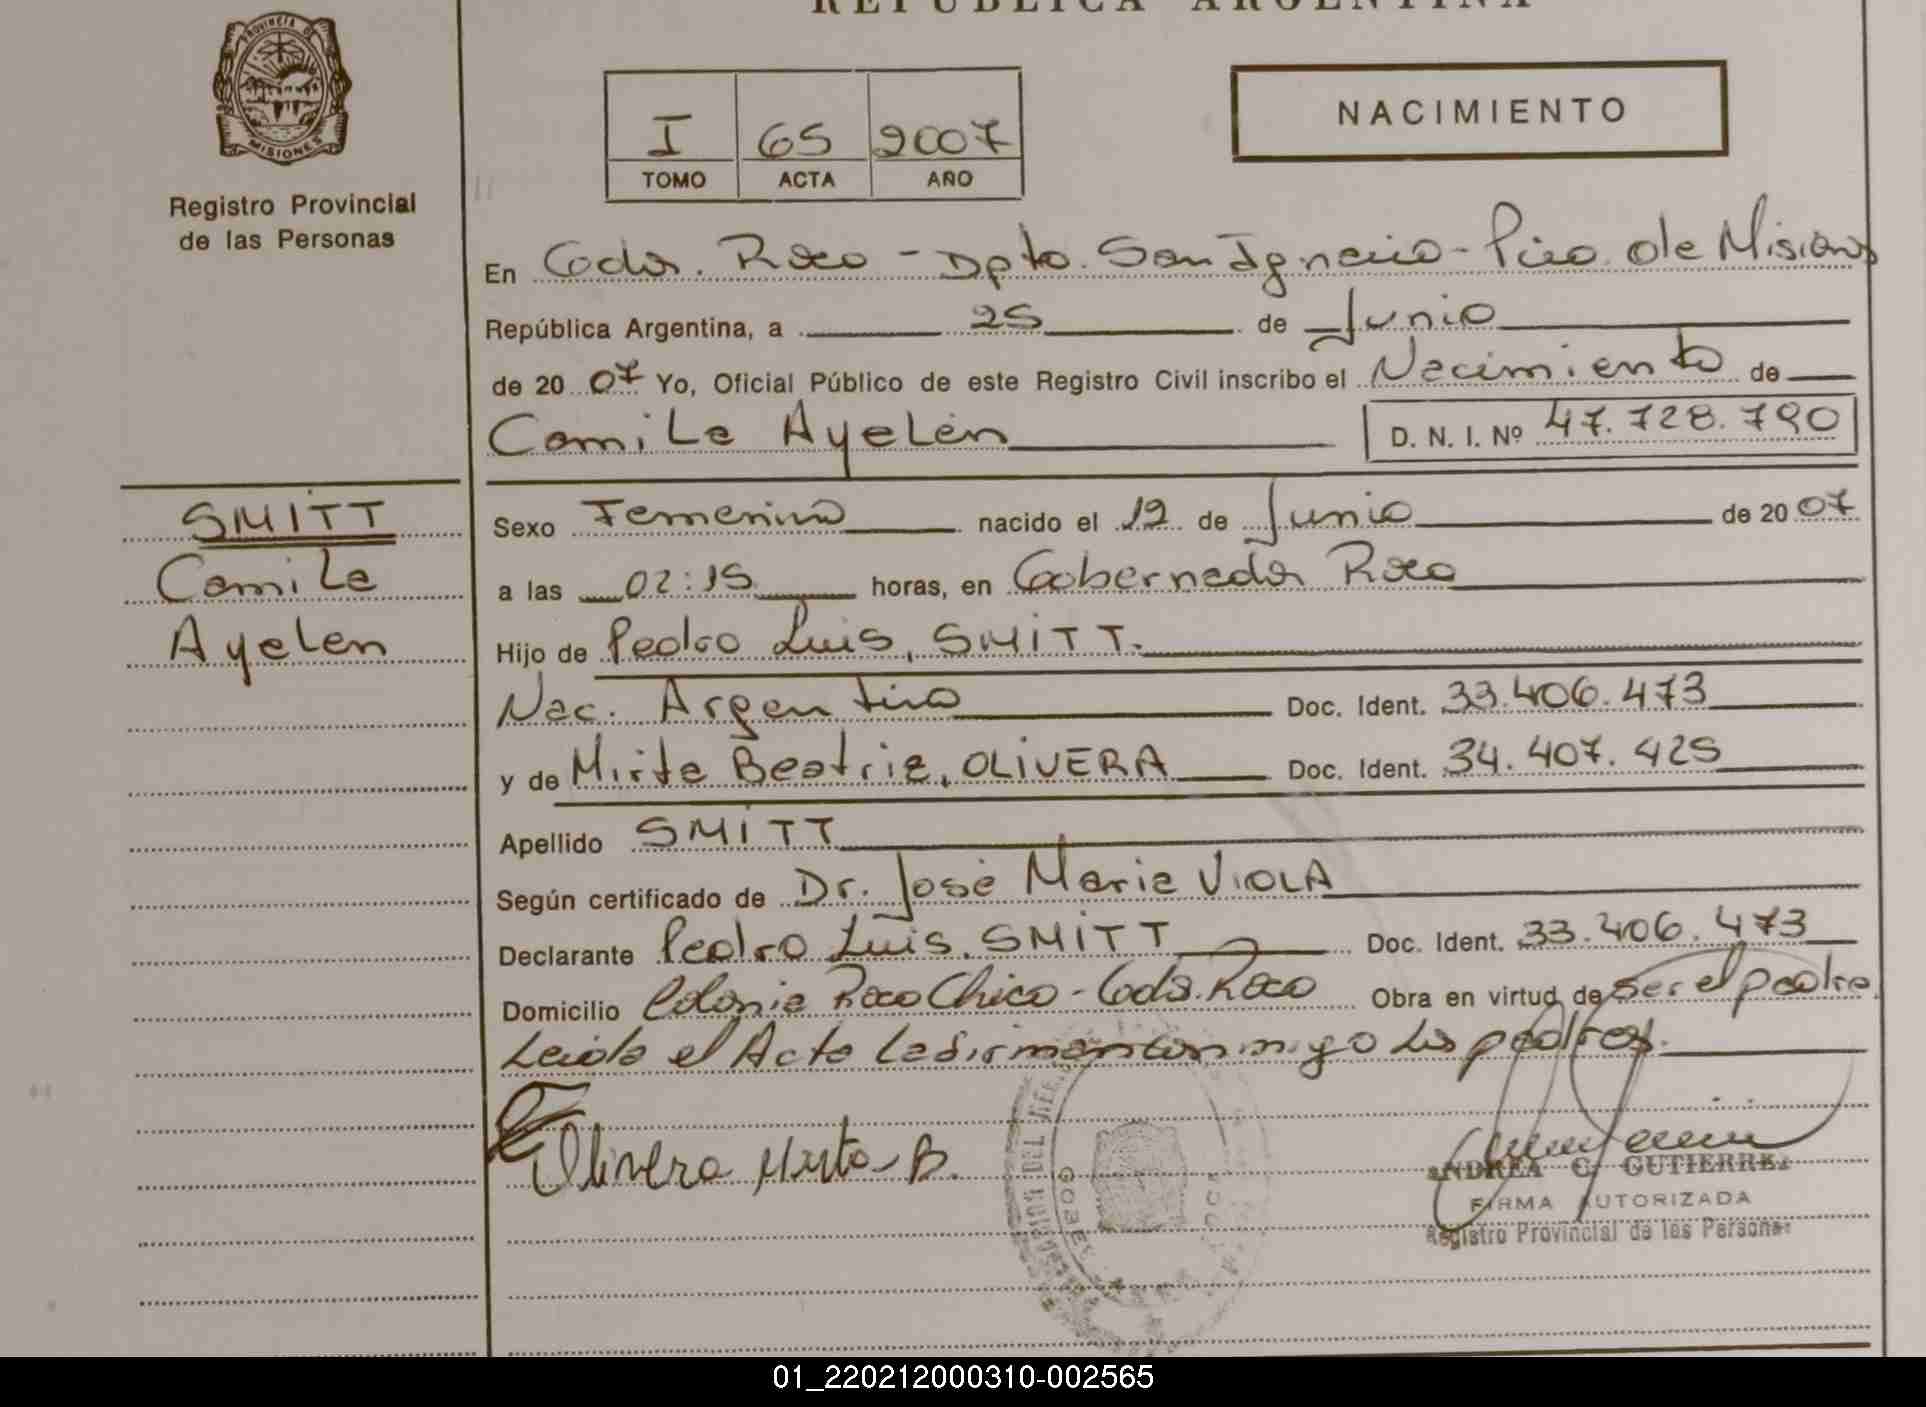 REPUBLICA ARGENTINA
PROVINCIA DE
MISIONES
Registro Provincial
de las Personas
I 65 2007
TOMO ACTA AÑO
NACIMIENTO
En Gdor. Roca - Dpto. San Ignacio - Pcia. de Misiones
República Argentina, a 25 de Junio
de 2007 Yo, Oficial Público de este Registro Civil inscribo el Nacimiento de
Camila Ayelén D. N. I. Nº 47.728.790
SMITT
Camila
Ayelen
Sexo Femenino nacido el 12 de Junio de 2007
a las 02:15 horas, en Gobernador Roca
Hijo de Pedro Luis, SMITT.
Nac. Argentina Doc. Ident. 33.406.473
y de Mirta Beatriz, OLIVERA Doc. Ident. 34.407.425
Apellido SMITT
Según certificado de Dr. José Maria VIOLA
Declarante Pedro Luis, SMITT Doc. Ident. 33.406.473
Domicilio Colonia Roca Chico - Gdor. Roca Obra en virtud de ser el padre.
Leida el Acta la firman con migo los padres.
Olivera Mirta B.
ANDREA C. GUTIERREZ
FIRMA AUTORIZADA
Registro Provincial de las Personas
01_220212000310-002565